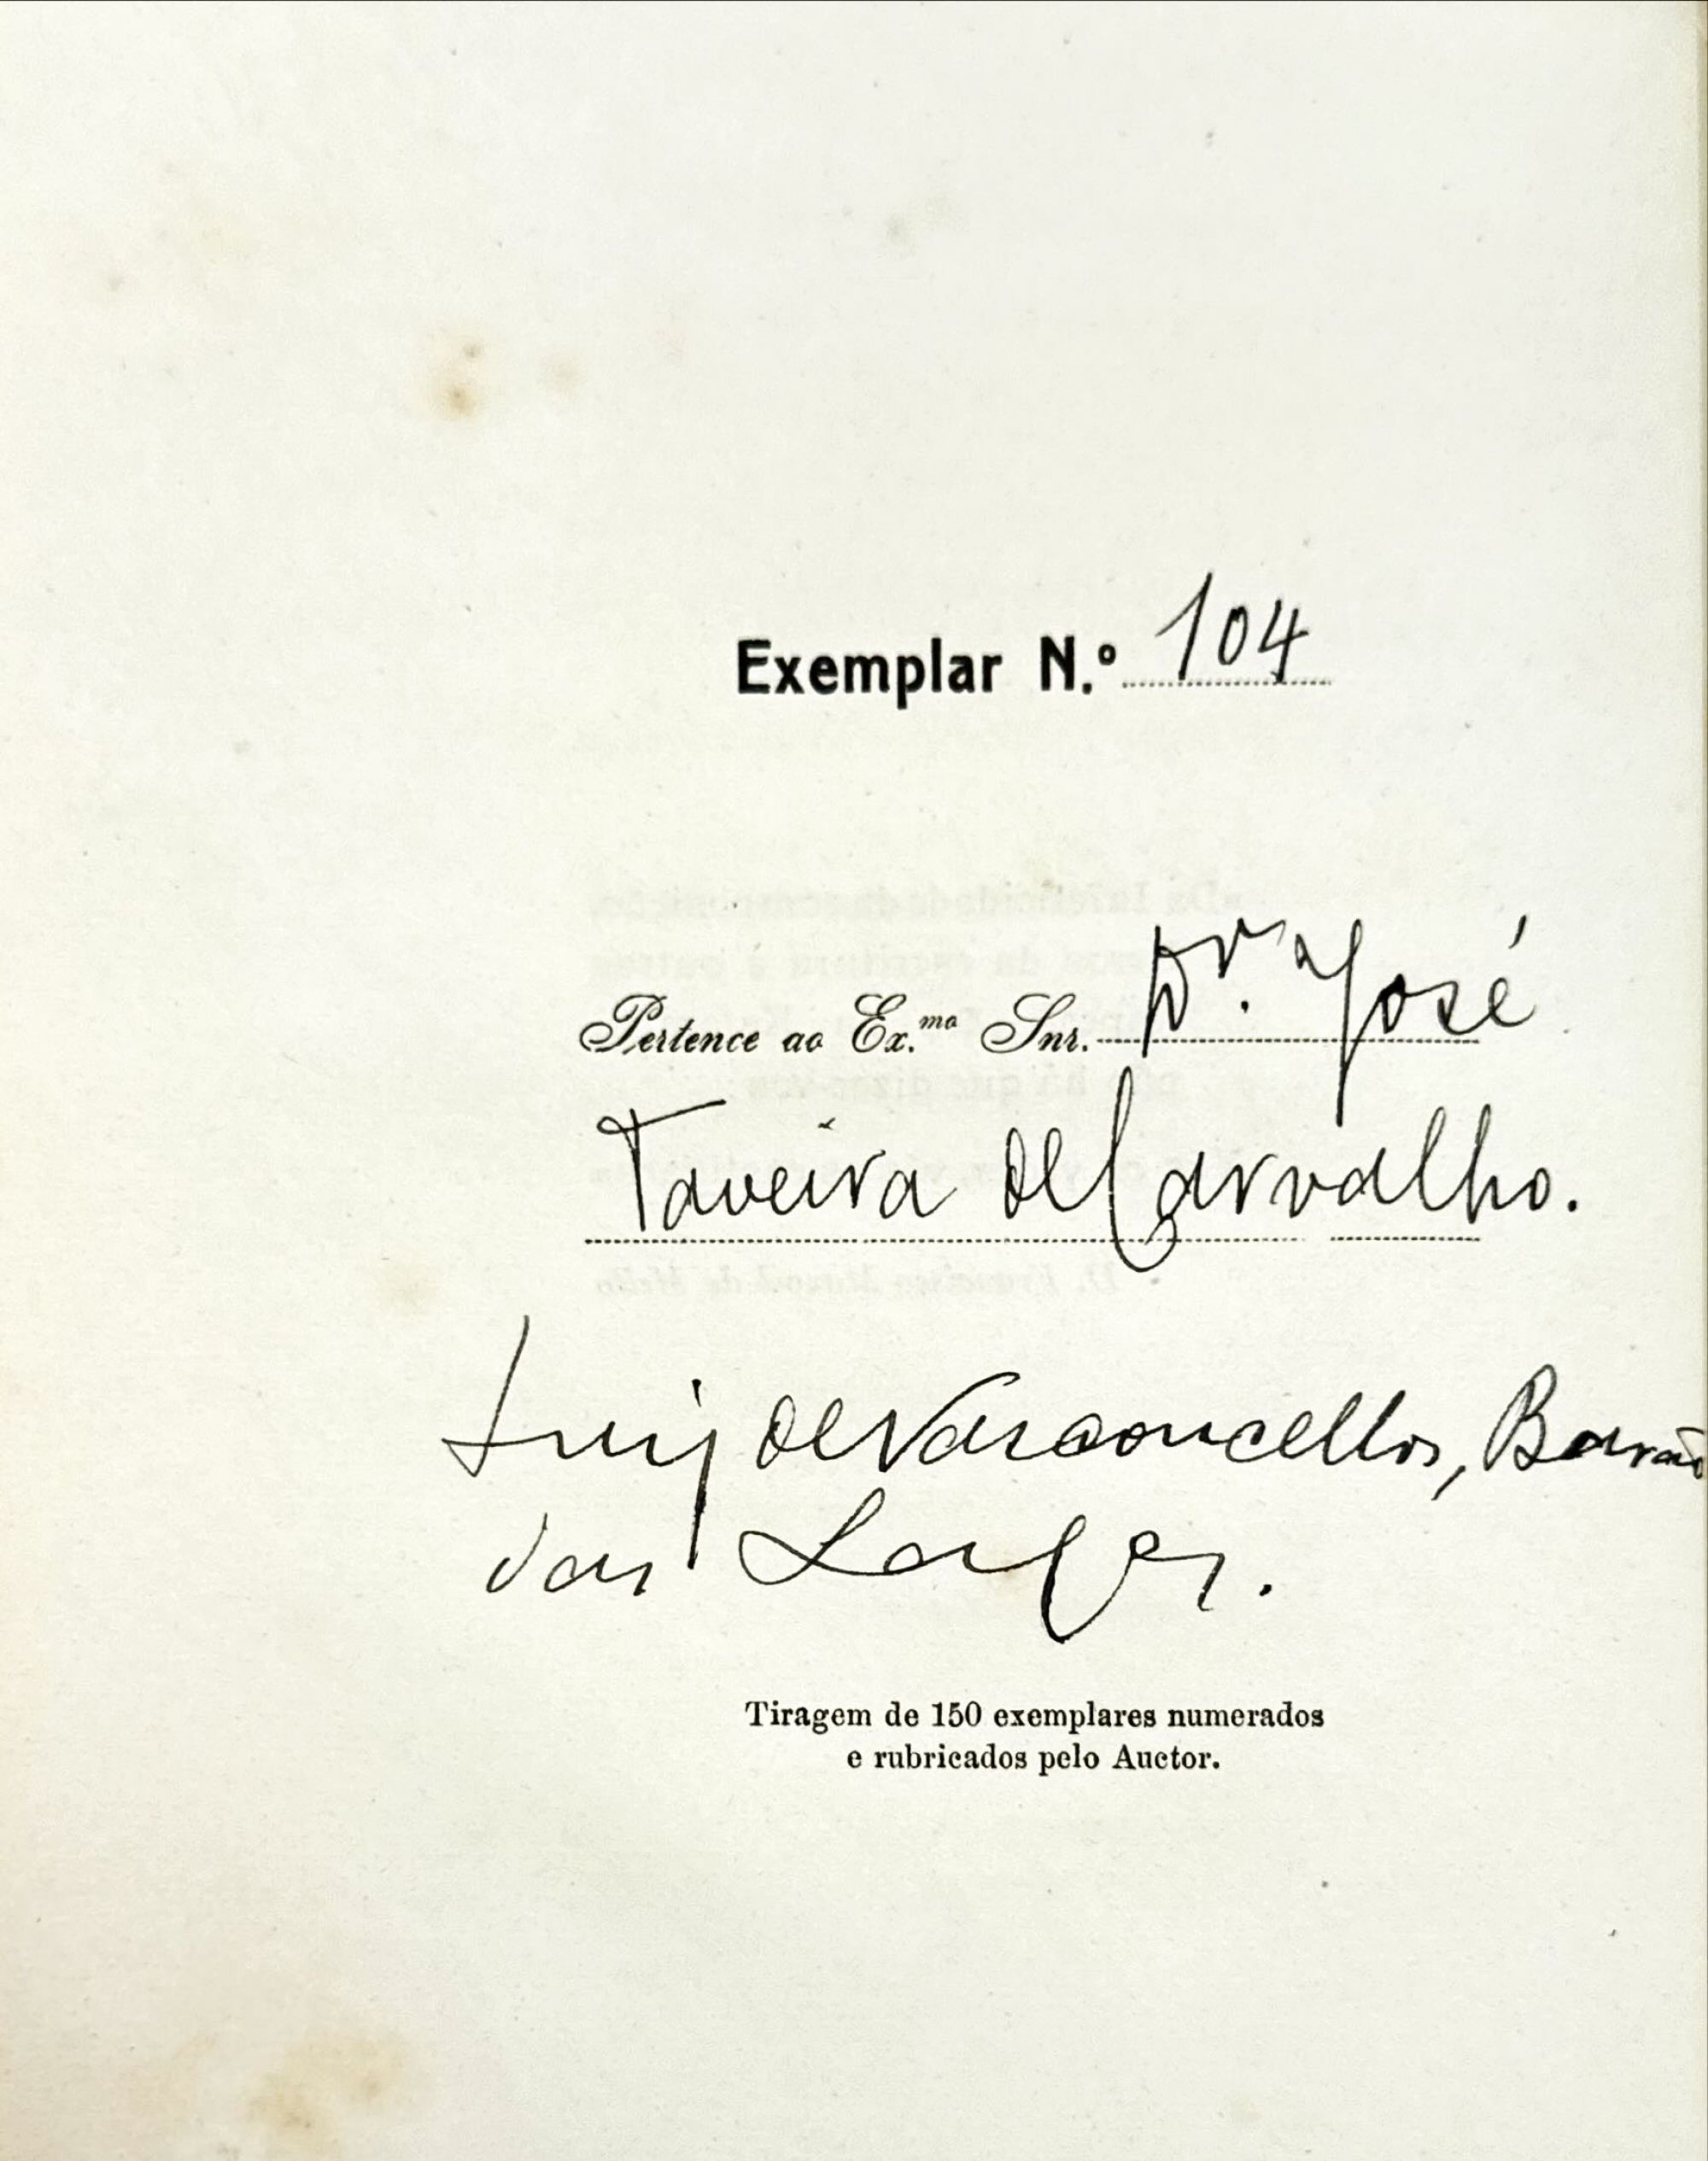 Exemplar N.º 104
Pertence ao Ex.mo Snr. Dr. José
Taveira de Carvalho.
Luiz de Vasconcellos, Barão
das Lages.
Tiragem de 150 exemplares numerados
e rubricados pelo Auctor.